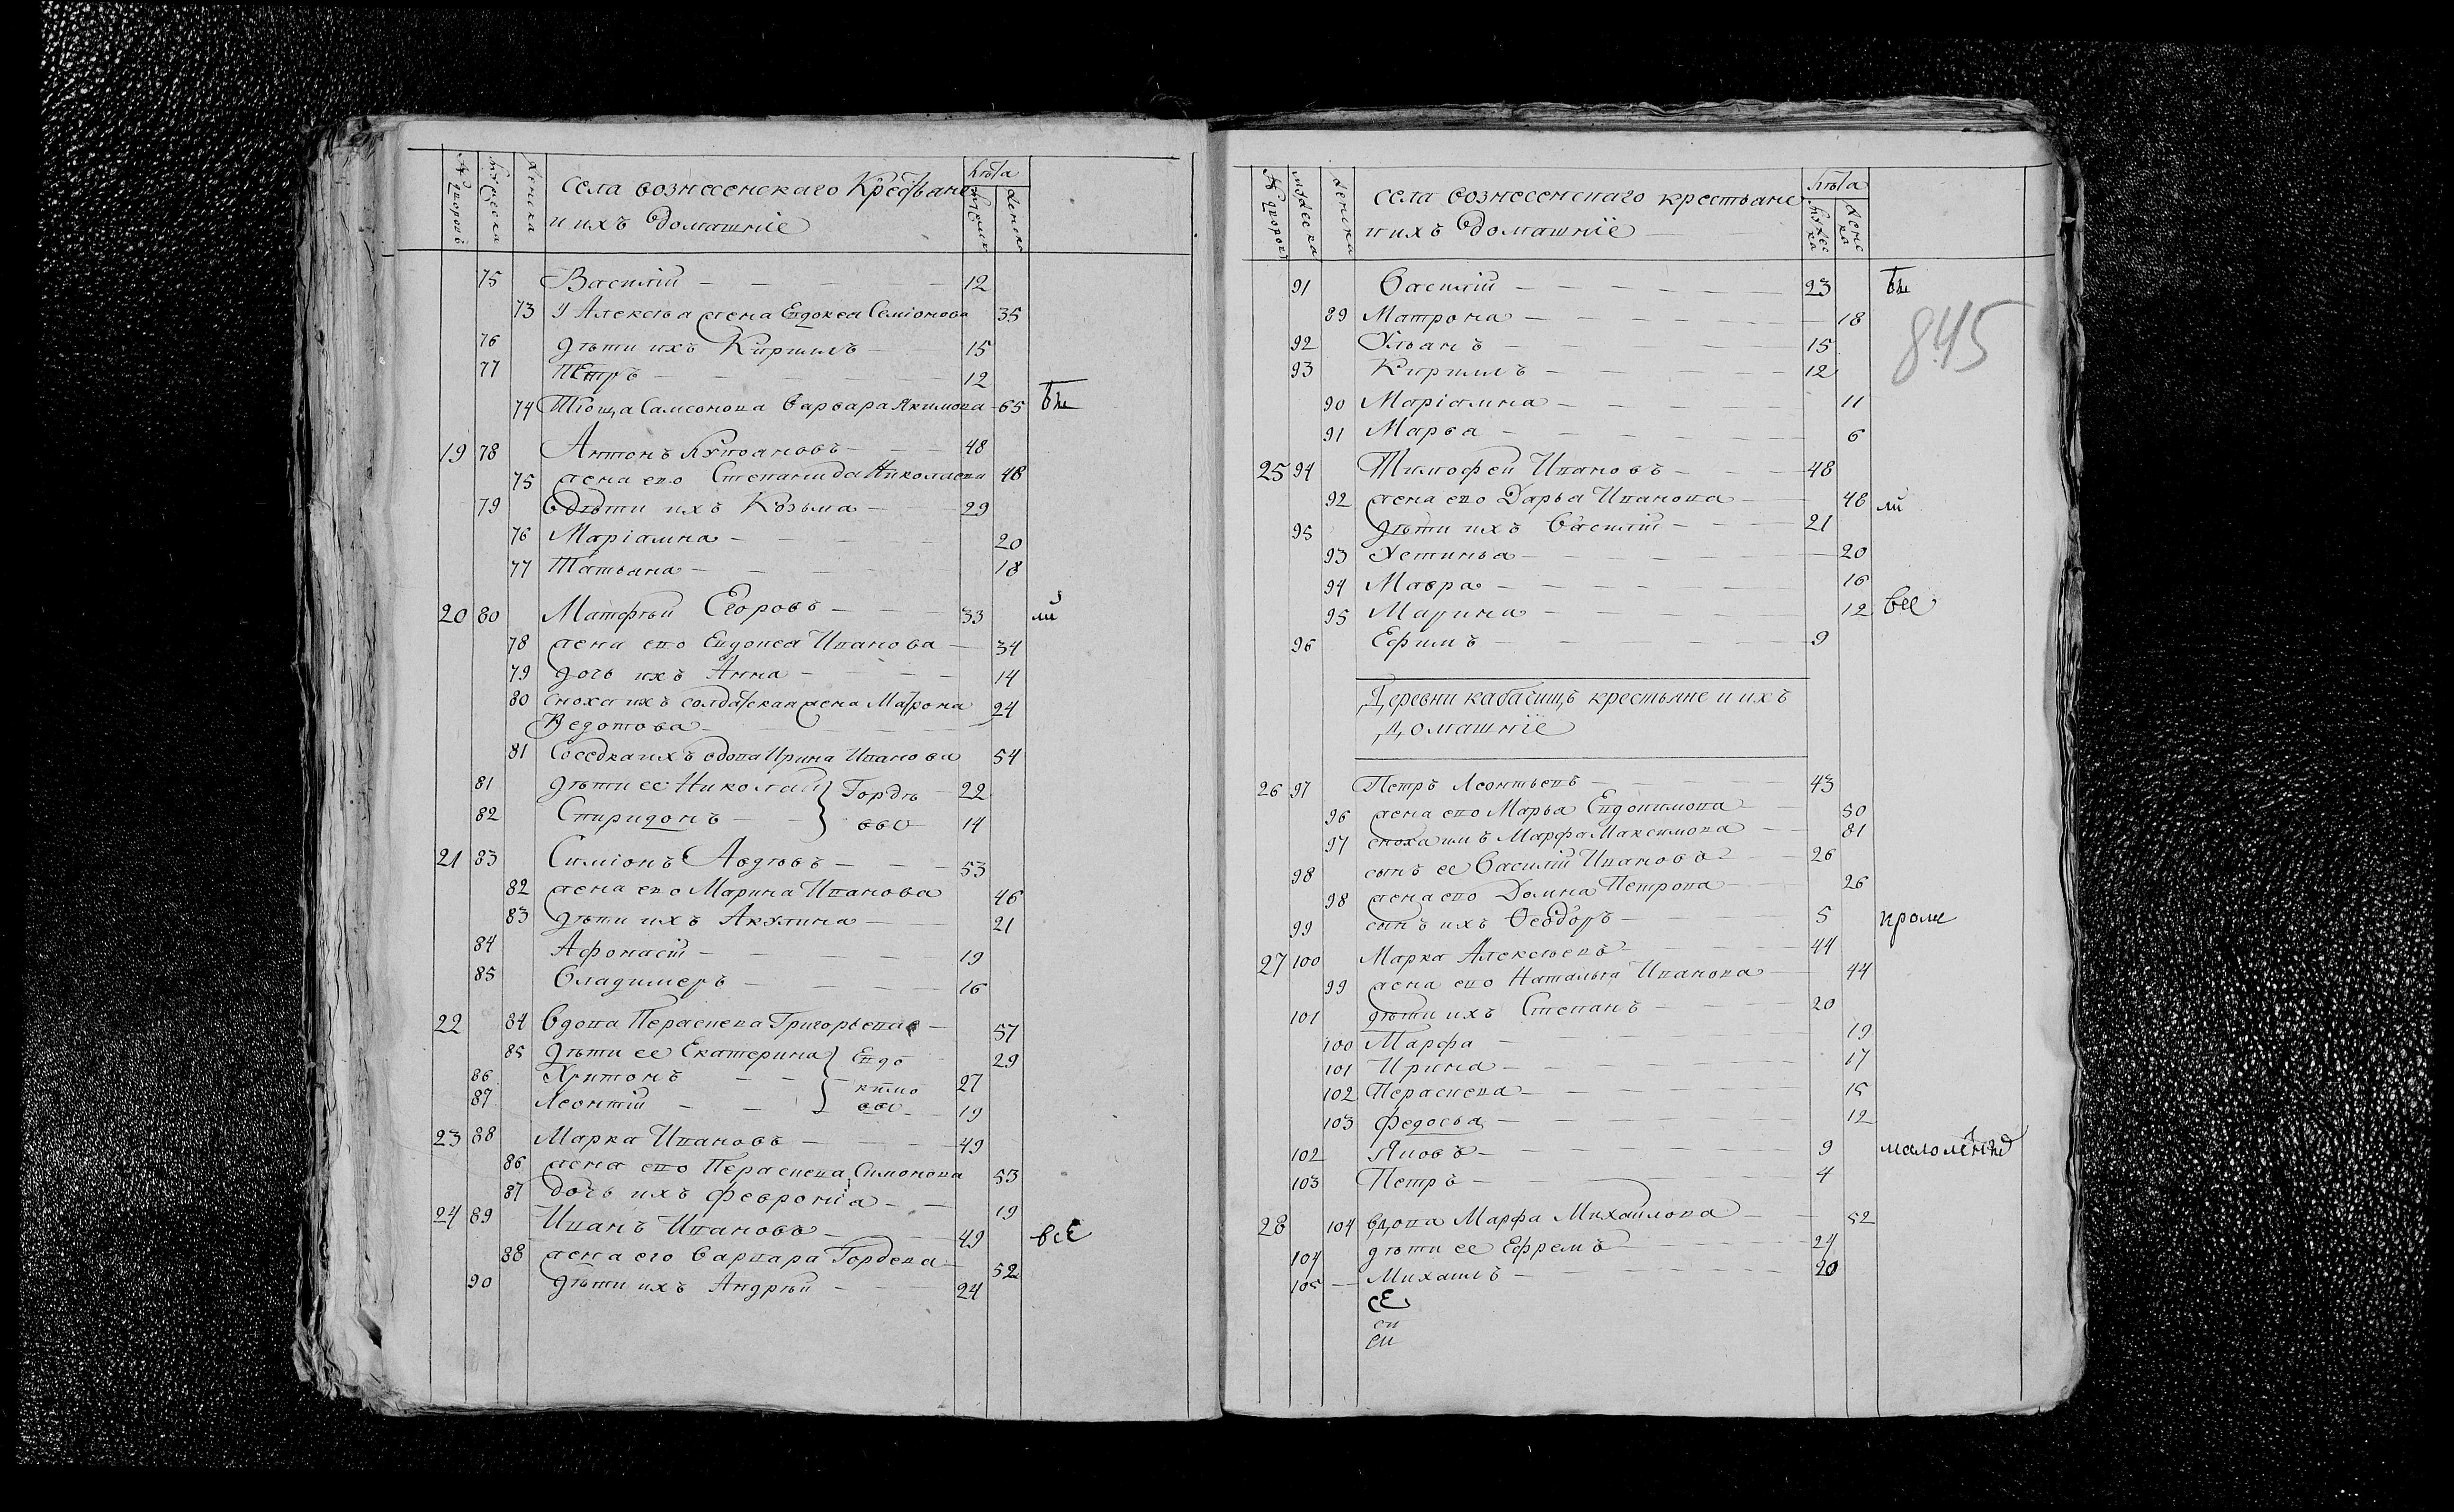 № дворовъ мужеска женска Села вознесенскаго Крестьяне лѣта
и ихъ домашніе мужеска женска
75 Василій 12
73 У Алексѣа жена Евдокеа Семіонова 35
76 дѣти ихъ Кирилъ 15
77 Петръ 12
74 Тіоща Самсонова Варвара Акимова 65 бы
19 78 Антонъ Купоановъ 48
75 жена его Степанида Николаева 48
79 дѣти ихъ Козьма 29
76 Маріамна 20
77 Татьяна 18
20 80 Матфѣй Егоровъ 33 ли
78 жена его Евдокеа Иванова 34
79 дочь ихъ Анна 14
80 сноха ихъ солдатская жена Матрона 24
Ѳедотова
81 Соседка ихъ вдова Ирина Иванова 54
81 дѣти ее Николай } Гордѣ 22
82 Спиридонъ } евы 14
21 83 Симіонъ Авдѣевъ 53
82 жена его Марина Иванова 46
83 дѣти ихъ Акулина 21
84 Афонасій 19
85 Владимеръ 16
22 84 Вдова Параскева Григорьева 57
85 дѣти ее Екатерина } Евдо 29
86 Харитонъ } кимо 27
87 Леонтій } вы 19
23 88 Марка Ивановъ 49
86 жена его Параскева Симонова 53
87 дочь ихъ Февроніа 19
24 89 Иванъ Ивановъ 49 все
88 жена его Варвара Гордева 52
90 дѣти ихъ Андрѣй 24
№ дворовъ мужеска женска Села вознесенскаго крестьяне лѣта
и ихъ домашніе мужеска женска
91 Василій 23 бы
845
89 Матрона 18
92 Ульанъ 15
93 Кирилъ 12
90 Маріамна 11
91 Марѳа 6
25 94 Тимофей Ивановъ 48
92 жена его Дарьа Иванова 48 ли
95 дѣти ихъ Василій 21
93 Устиньа 20
94 Мавра 16
95 Марина 12 все
96 Ефимъ 9
Деревни кабачищъ крестьяне и ихъ
домашніе
26 97 Петръ Леонтьевъ 43
96 жена его Марьа Евдокимова 50
97 сноха имъ Марфа Максимова 81
98 сынъ ее Василій Ивановъ 26
98 жена его Домна Петрова 26
99 сынъ ихъ Ѳеодоръ 5 кроме
27 100 Марка Алексѣевъ 44
99 жена его Натальа Иванова 44
101 дѣти ихъ Степанъ 20
100 Марфа 19
101 Ирина 17
102 Параскева 15
103 Федосьа 12
102 Яковъ 9 малолетнѣ
103 Петръ 4
28 104 вдова Марфа Михаилова 52
104 дѣти ее Ефремъ 24
105 Михаилъ 20